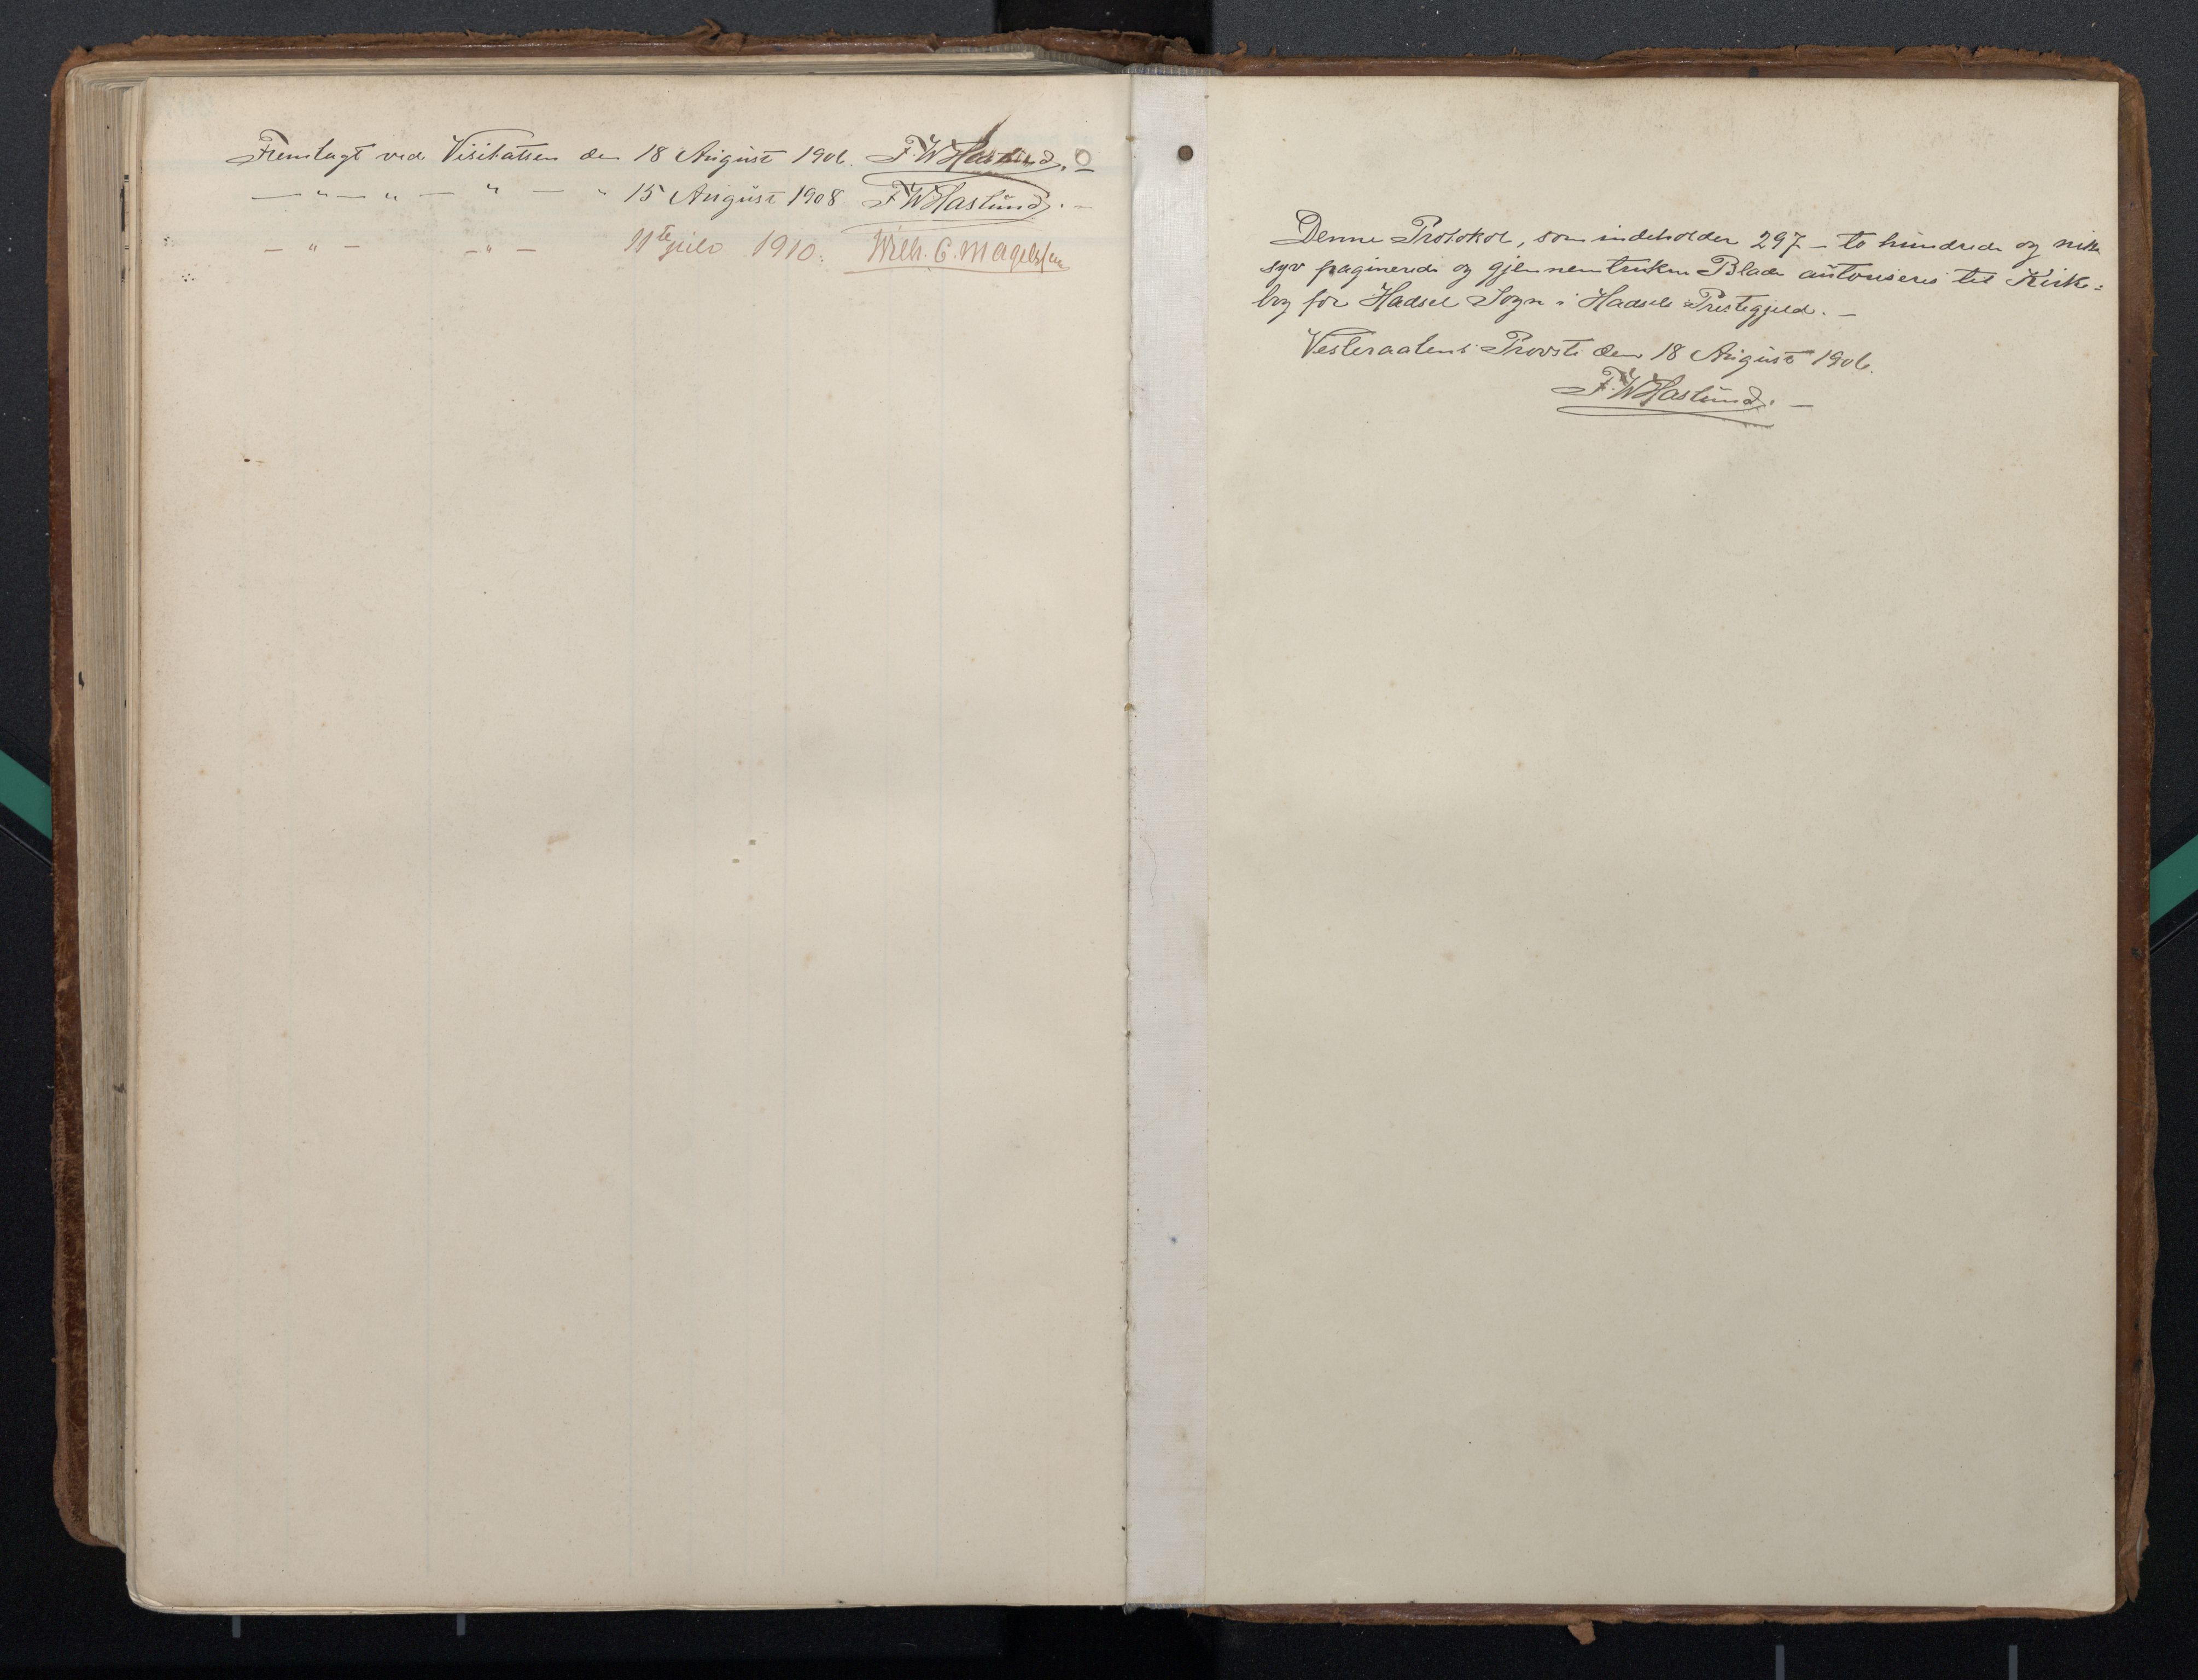 Fremlagt ved Visitatsen den 18 August 1906. F. W Haslund. –
— " — " — " — " 15 August 1908 F W Haslund. –
— " — — " — 11te juli 1910. Wilh. C. Magelssen
Denne Protokol, som indeholder 297 – to hundrede og nitti
syv paginerede og gjennemtrukne Blade autoriseres til Kirke=
bog for Hadsel Sogn i Hadsels Prestegjeld. –
Vesteraalens Provsti den 18 August 1906.
F. W Haslund. –